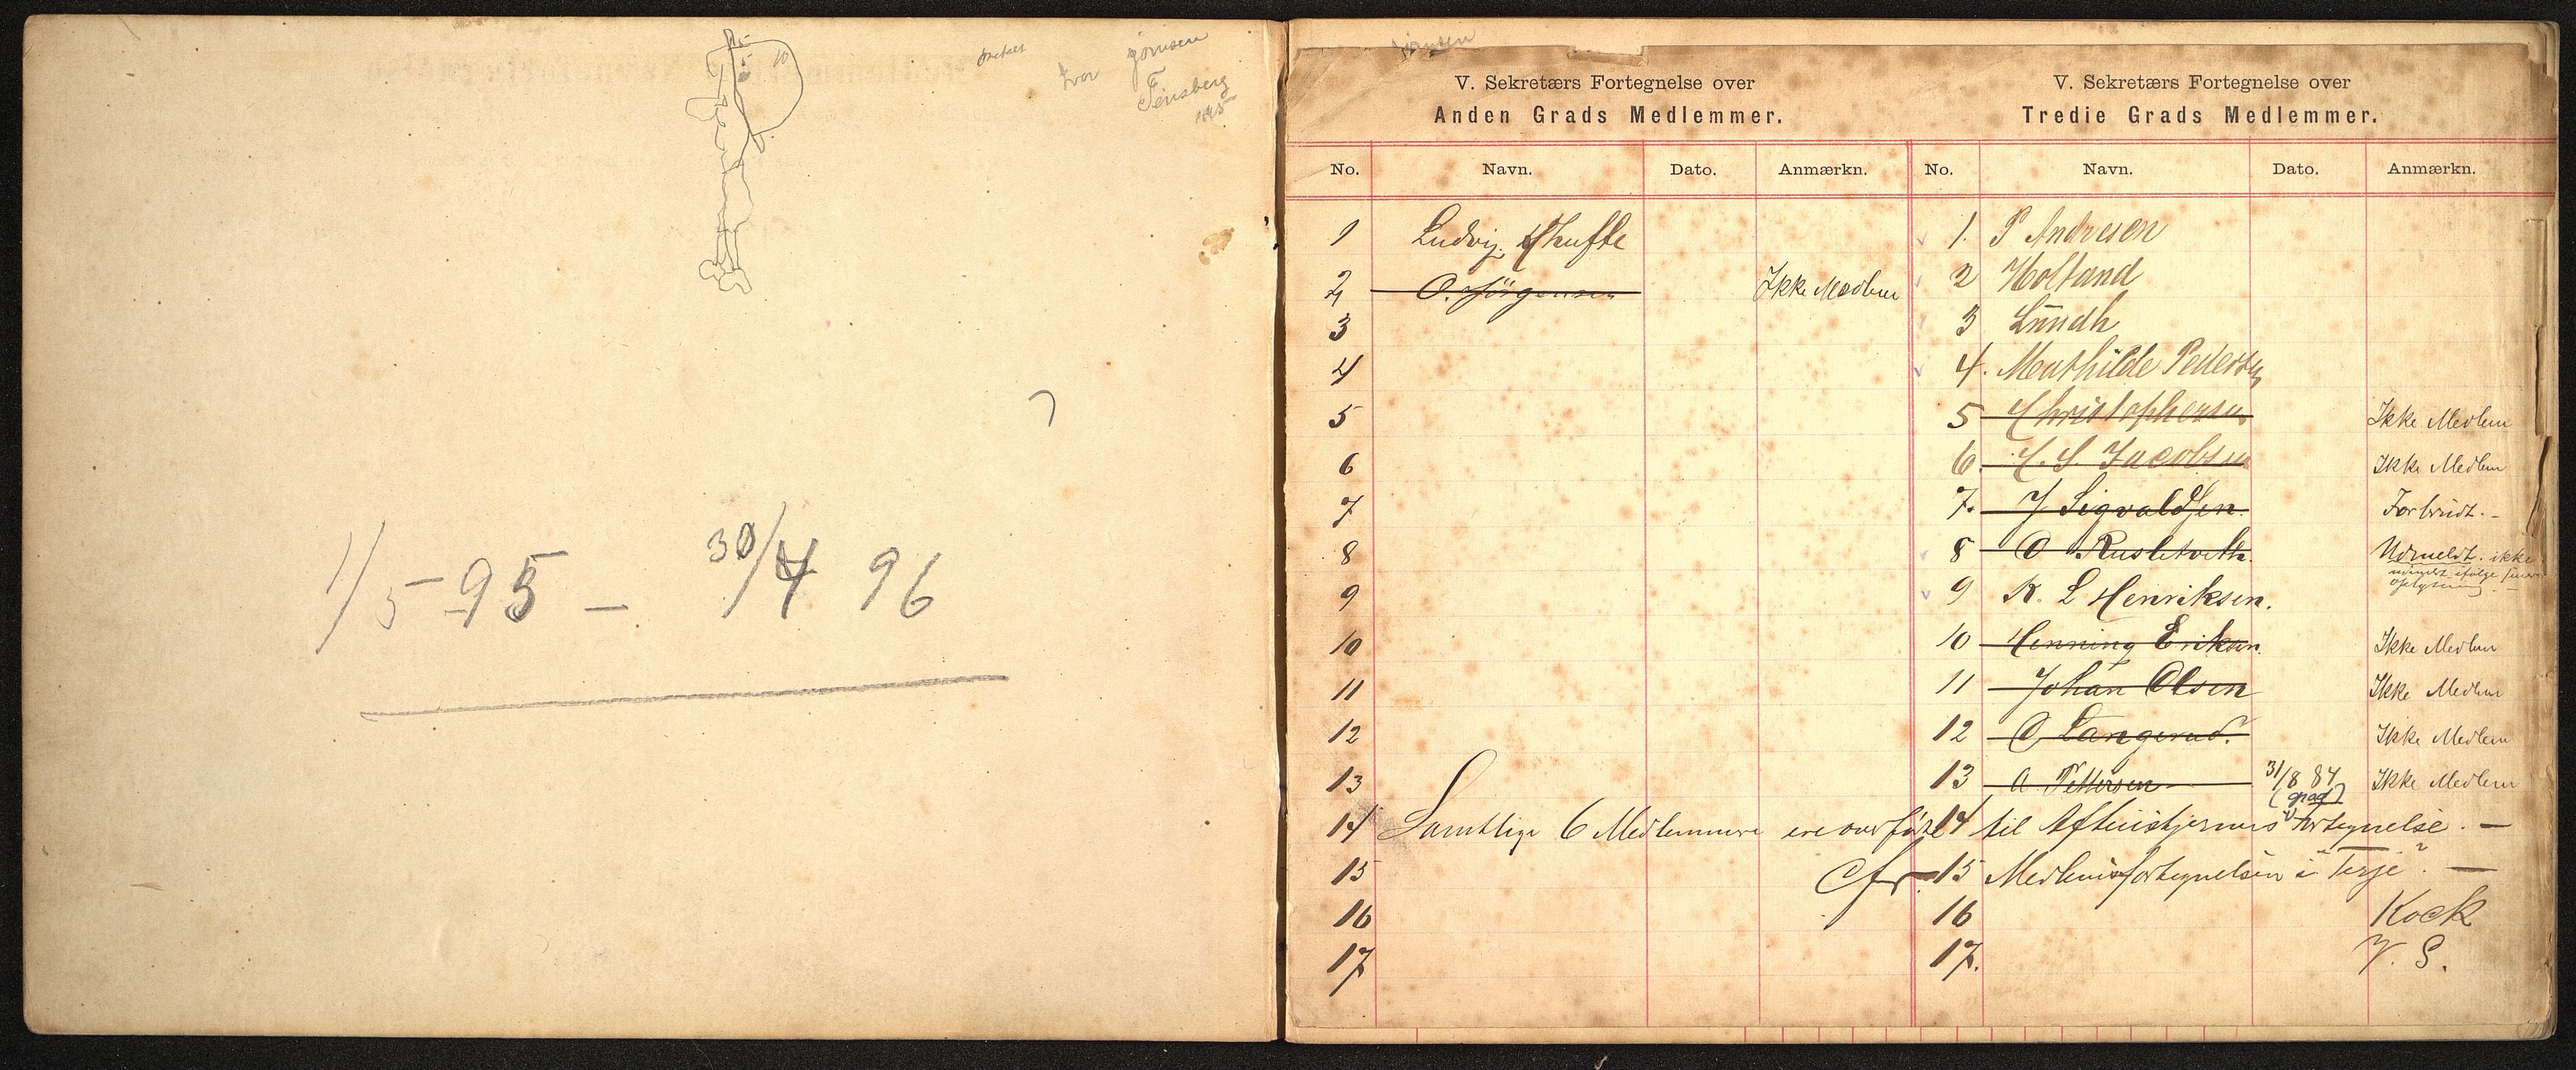 Tønsberg
1/5 - 95 - 30/4 96
V. Sekretærs Fortegnelse over
Anden Grads Medlemmer.
No. Navn. Dato. Anmærkn.
1 Ludvig
2 O. Jörgensen Ikke Medlem
3
4
5
6
7
8
9
10
11
12
13
14
15
16
17
V. Sekretærs Fortegnelse over
Tredie Grads Medlemmer.
No. Navn. Dato. Anmærkn.
1. P Andresen
2 Holtand
3 Lundh
4. Mathilde Pedersen
5 Christophersen Ikke Medlem
6. Jacobsen Ikke Medlem
7. J Sigvaldsen. Forbrudt. -
8 O Rusletveth. Udmeldt. ikke
udmeldt ifølge
oplysning. -
9 K. L Henriksen.
10 Henning Eriksen. Ikke Medlem
11 Johan Olsen Ikke Medlem
12 O Langerud. Ikke Medlem
13 A Pettersen 31/8 84 Ikke Medlem
(grad)
14 Samtlige 6 Medlemmer ere overført til Aftenstjernens Fortegnelse. —
Cfr. 15 Medlemsfortegnelsen i "Terje". —
16 Kock
17. V. S.